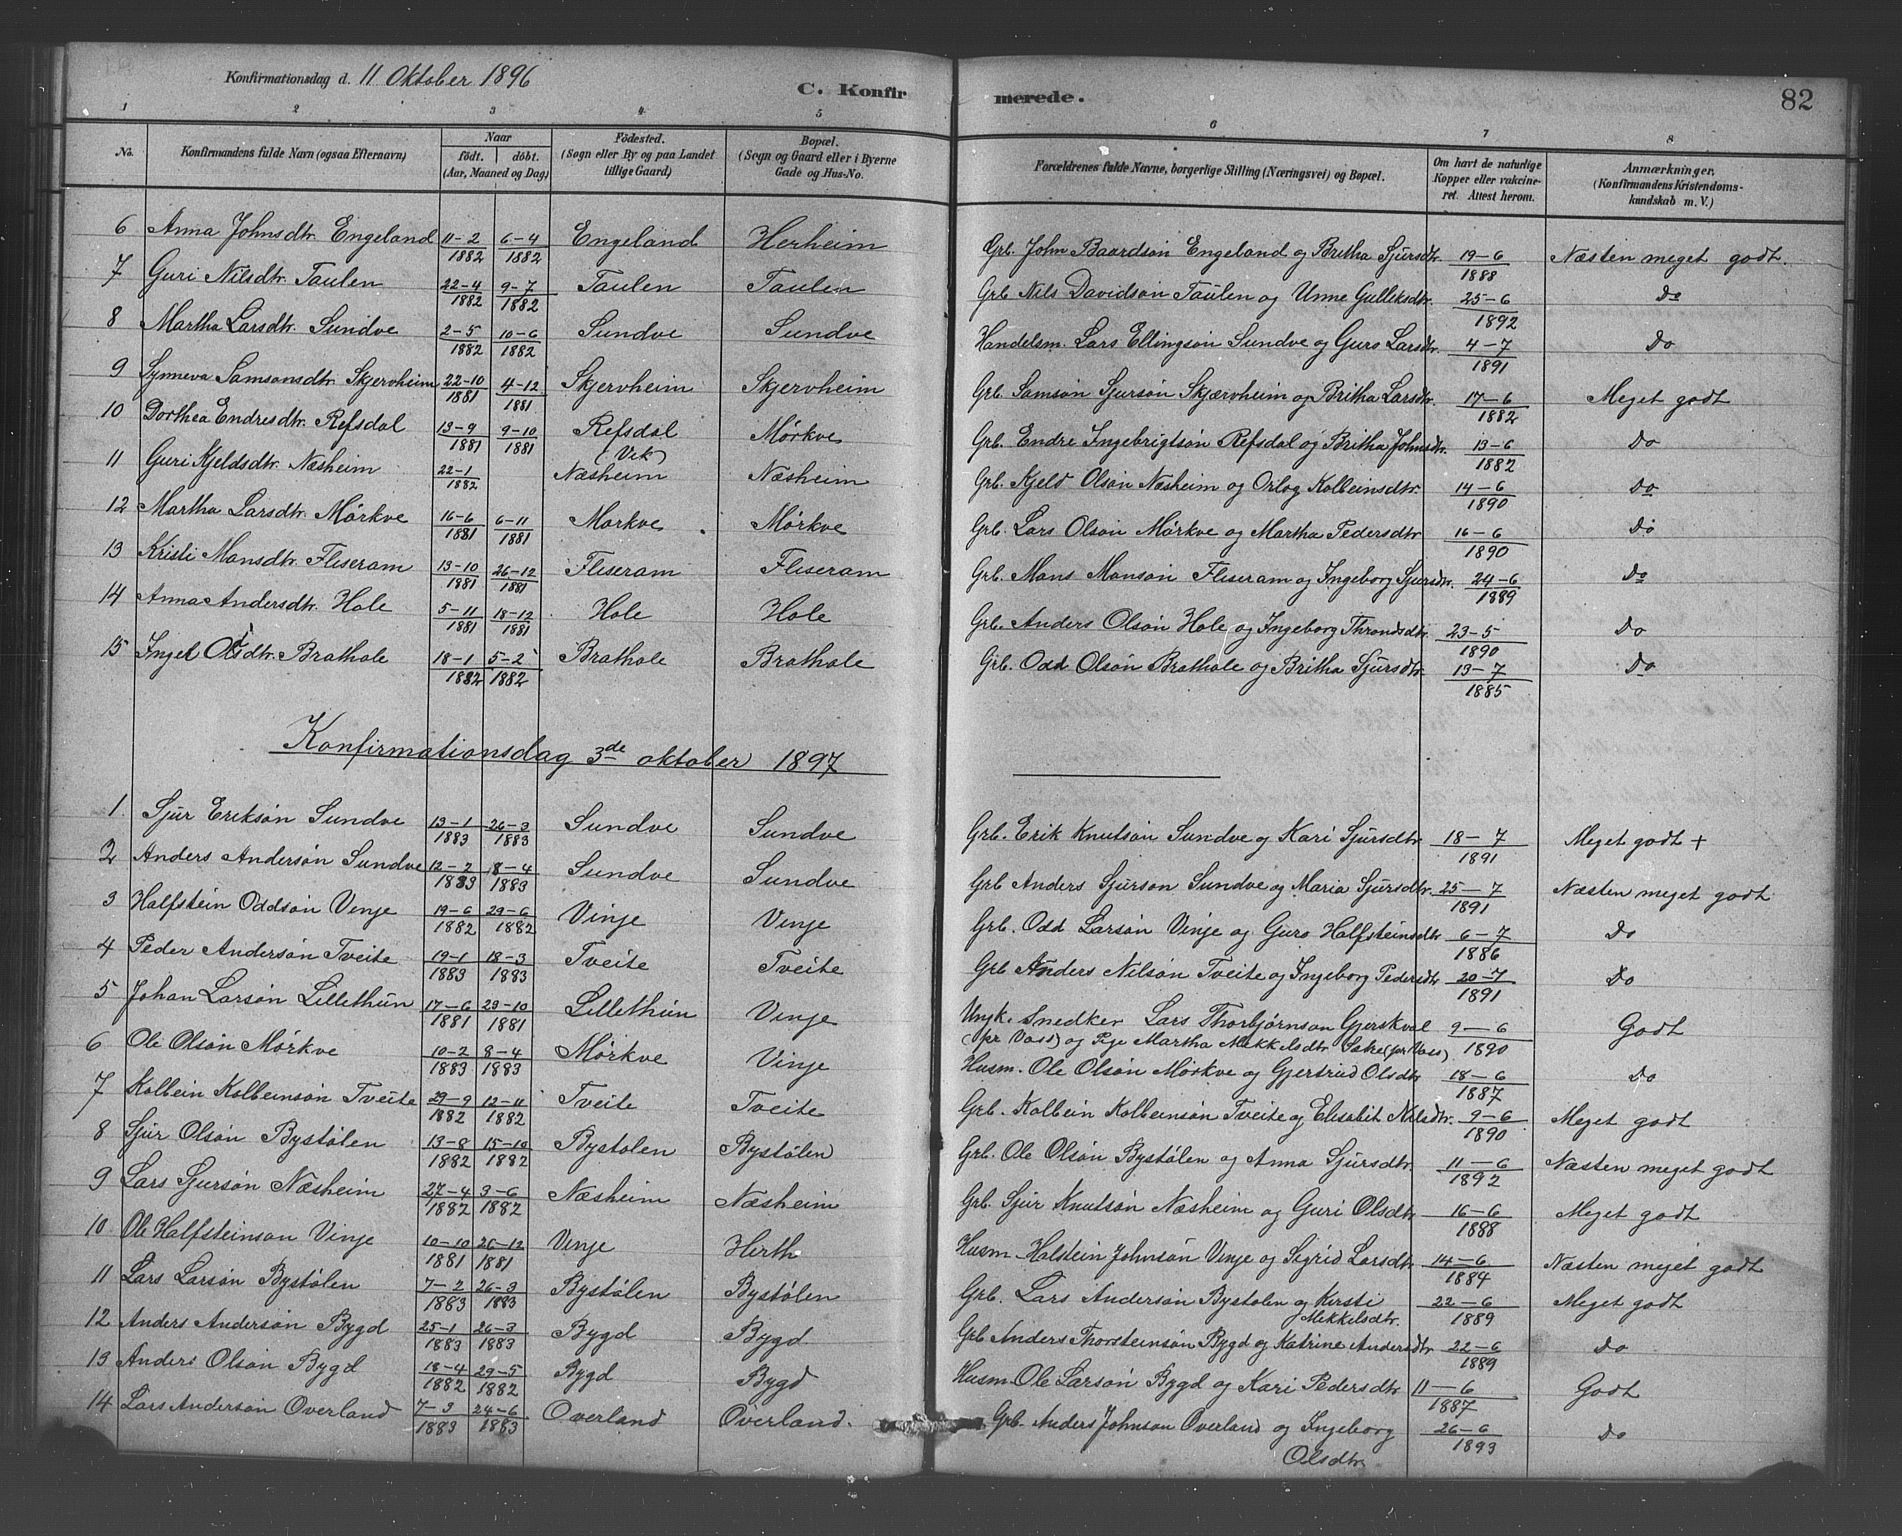 Konfirmationsdag d. 11 Oktober 1896
C. Konfirmerede.
82
1 2 3 4 5 6 7 8
No. Konfirmandens fulde Navn (ogsaa Efternavn) Naar født. døbt. (Aar, Maaned og Dag) Fødested. (Sogn eller By og paa Landet tillige Gaard) Bopæl. (Sogn og Gaard eller i Byerne Gade og Hus-No. Forældrenes fulde Navne, borgerlige Stilling (Næringsvei) og Bopæl. Om havt de naturlige Kopper eller vakcineret. Attest herom. Anmærkninger. (Konfirmandens Kristendomskundskab m. V.)
6 Anna Johnsdtr. Engeland 11-2 1882 6-4 1882 Engeland Herheim Grb. John Baardsøn Engeland og Britha Sjursdtr. 19-6 1888 Næsten meget godt.
7 Guri Nilsdtr. Taulen 22-4 1882 9-7 1882 Taulen Taulen Grb Nils Davidsøn Taulen og Unne Gulleksdtr. 25-6 1892 Do
8 Martha Larsdtr. Sundve 2-5 1882 10-6 1882 Sundve Sundve Handelsm. Lars Ellingsøn Sundve og Guro Larsdtr. 4-7 1891 Do
9 Synneva Samsonsdtr. Skjervheim 22-10 1881 4-12 1881 Skjervheim Skjervheim Grb. Samson Sjursøn Skjærvheim og Britha Larsdtr. 17-6 1882 Meget godt
10 Dorthea Endresdtr. Refsdal 13-9 1881 9-10 1881 Refsdal (Vik) Mørkve Grb. Endre Ingebrigtsøn Refsdal og Britha Johnsdtr. 13-6 1882 Do
11 Guri Kjeldsdtr. Næsheim 22-1 1882 Næsheim Næsheim Grb. Kjeld Olsøn Næsheim og Orlog Kolbeinsdtr. 14-6 1890 Do
12 Martha Larsdtr. Mørkve 16-6 1881 6-11 1881 Mørkve Mørkve Grb. Lars Olson Mørkve og Martha Pedersdtr 16-6 1890 Do
13 Kristi Mansdtr. Fliseram 13-10 1881 26-12 1881 Fliseram Fliseram Grb. Mons Monsøn Fliseram og Ingeborg Sjursdtr. 24-6 1889 Do
14 Anna Andersdtr. Hole 5-11 1881 18-12 1881 Hole Hole Grb. Anders Olsøn Hole og Ingeborg Throndsdtr. 23-5 1890 Do
15 Ingel Odsdtr. Brathole 18-1 1882 5-2 1882 Brathole Brathole Grb. Odd Olsøn Brathole og Britha Sjursdtr 13-7 1885 Do
Konfirmationsdag 3de oktober 1897
1 Sjur Eriksøn Sundve 13-1 1883 26-3 1883 Sundve Sundve Grb. Erik Knutsøn Sundve og Kari Sjursdtr 18-7 1891 Meget godt +
2 Anders Andersøn Sundve 12-2 1883 8-4 1883 Sundve Sundve Grb Anders Sjurson Sundve og Maria Sjursdtr 25-7 1891 Næsten meget godt
3 Halfstein Oddsøn Vinje 19-6 1882 29-6 1882 Vinje Vinje Grb. Odd Larsøn Vinje og Guro Halfsteinsdtr 6-7 1886 Do
4 Peder Andersøn Tveite 19-1 1883 18-3 1883 Tveite Tveite Grb Anders Nilsøn Tveite og Ingeborg Pedersdtr 20-7 1891 Do
5 Johan Larsøn Lillethun 17-6 1881 23-10 1881 Lillethun Vinje Ungk. Snedker Lars Thorbjørnson Gjerskvol (Opr Voss) og Pige Martha Mikkelsdtr Sætre (pr Voss). 9-6 1890 Godt
6 Ole Olsøn Mørkve 10-2 1883 8-4 1883 Mørkve Vinje Husm. Ole Olsøn Mørkve og Gjertrud Olsdtr 18-6 1887 Do
7 Kolbein Kolbeinsøn Tveite 29-9 1882 12-11 1882 Tveite Tveite Grb. Kolbein Kolbeinsøn Tveite og Elisabit Nilsdtr. 9-6 1890 Meget godt
8 Sjur Olsøn Bystølen 13-8 1882 15-10 1882 Bystølen Bystølen Grb. Ole Olsøn Bystølen og Anna Sjursdtr. 11-6 1892 Næsten meget godt
9 Lars Sjursøn Næsheim 27-4 1882 3-6 1882 Næsheim Næsheim Grb. Sjur Knutsøn Næsheim og Guri Olsdtr 16-6 1888 Meget godt
10 Ole Halfsteinsøn Vinje 10-10 1881 26-12 1881 Vinje Herth Husm. Halstein Johnsøn Vinje og Sigrid Larsdtr 14-6 1884 Næsten meget godt
11 Lars Larsøn Bystølen 7-2 1883 26-3 1883 Bystølen Bystølen Grb. Lars Andersøn Bystølen og Kirsti Mikkelsdtr. 22-6 1889 Meget godt
12 Anders Andersøn Bygd 25-1 1883 26-3 1883 Bygd Bygd Grb Anders Thorsteinsøn Bygd og Katrine Andersdtr 22-6 1889 Do
13 Anders Olsøn Bygd 18-4 1882 29-5 1882 Bygd Bygd Husm. Ole Larsøn Bygd og Kari Pedersdtr 11-6 1887 Godt
14 Lars Andersøn Overland 7-3 1883 24-6 1883 Overland Overland. Grb. Anders Johnson Overland og Ingeborg Olsdtr. 26-6 1893 Do